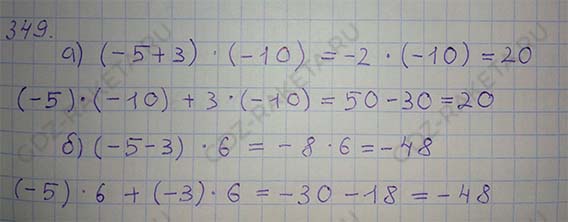 349.
а) (-5+3) · (-10) = -2 · (-10) = 20
(-5) · (-10) + 3 · (-10) = 50 - 30 = 20
б) (-5-3) · 6 = -8 · 6 = -48
(-5) · 6 + (-3) · 6 = -30 - 18 = -48